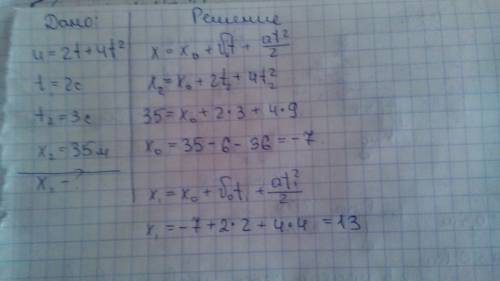 Дано:
u = 2t + 4t²
t₁ = 2c
t₂ = 3c
x₂ = 35м
x₁ - ?
Решение
x = x₀ + v₀t + at²/2
x₂ = x₀ + 2t₂ + 4t₂²
35 = x₀ + 2·3 + 4·9
x₀ = 35 - 6 - 36 = -7
x₁ = x₀ + v₀t₁ + at₁²/2
x₁ = -7 + 2·2 + 4·4 = 13